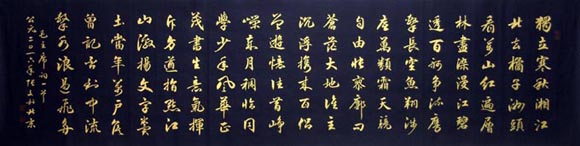 獨立寒秋湘江
北去橘子洲頭
看萬山紅遍層
林盡染漫江碧
透百舸爭流鷹
擊長空魚翔淺
底萬類霜天競
自由悵寥廓問
蒼茫大地誰主
沉浮攜來百侶
曾遊憶往昔崢
嶸歲月稠恰同
學少年風華正
茂書生意氣揮
斥方遒指點江
山激揚文字糞
土當年萬戶侯
曾記否到中流
擊水浪遏飛舟
毛主席詞一首
公元二〇一六年 北京